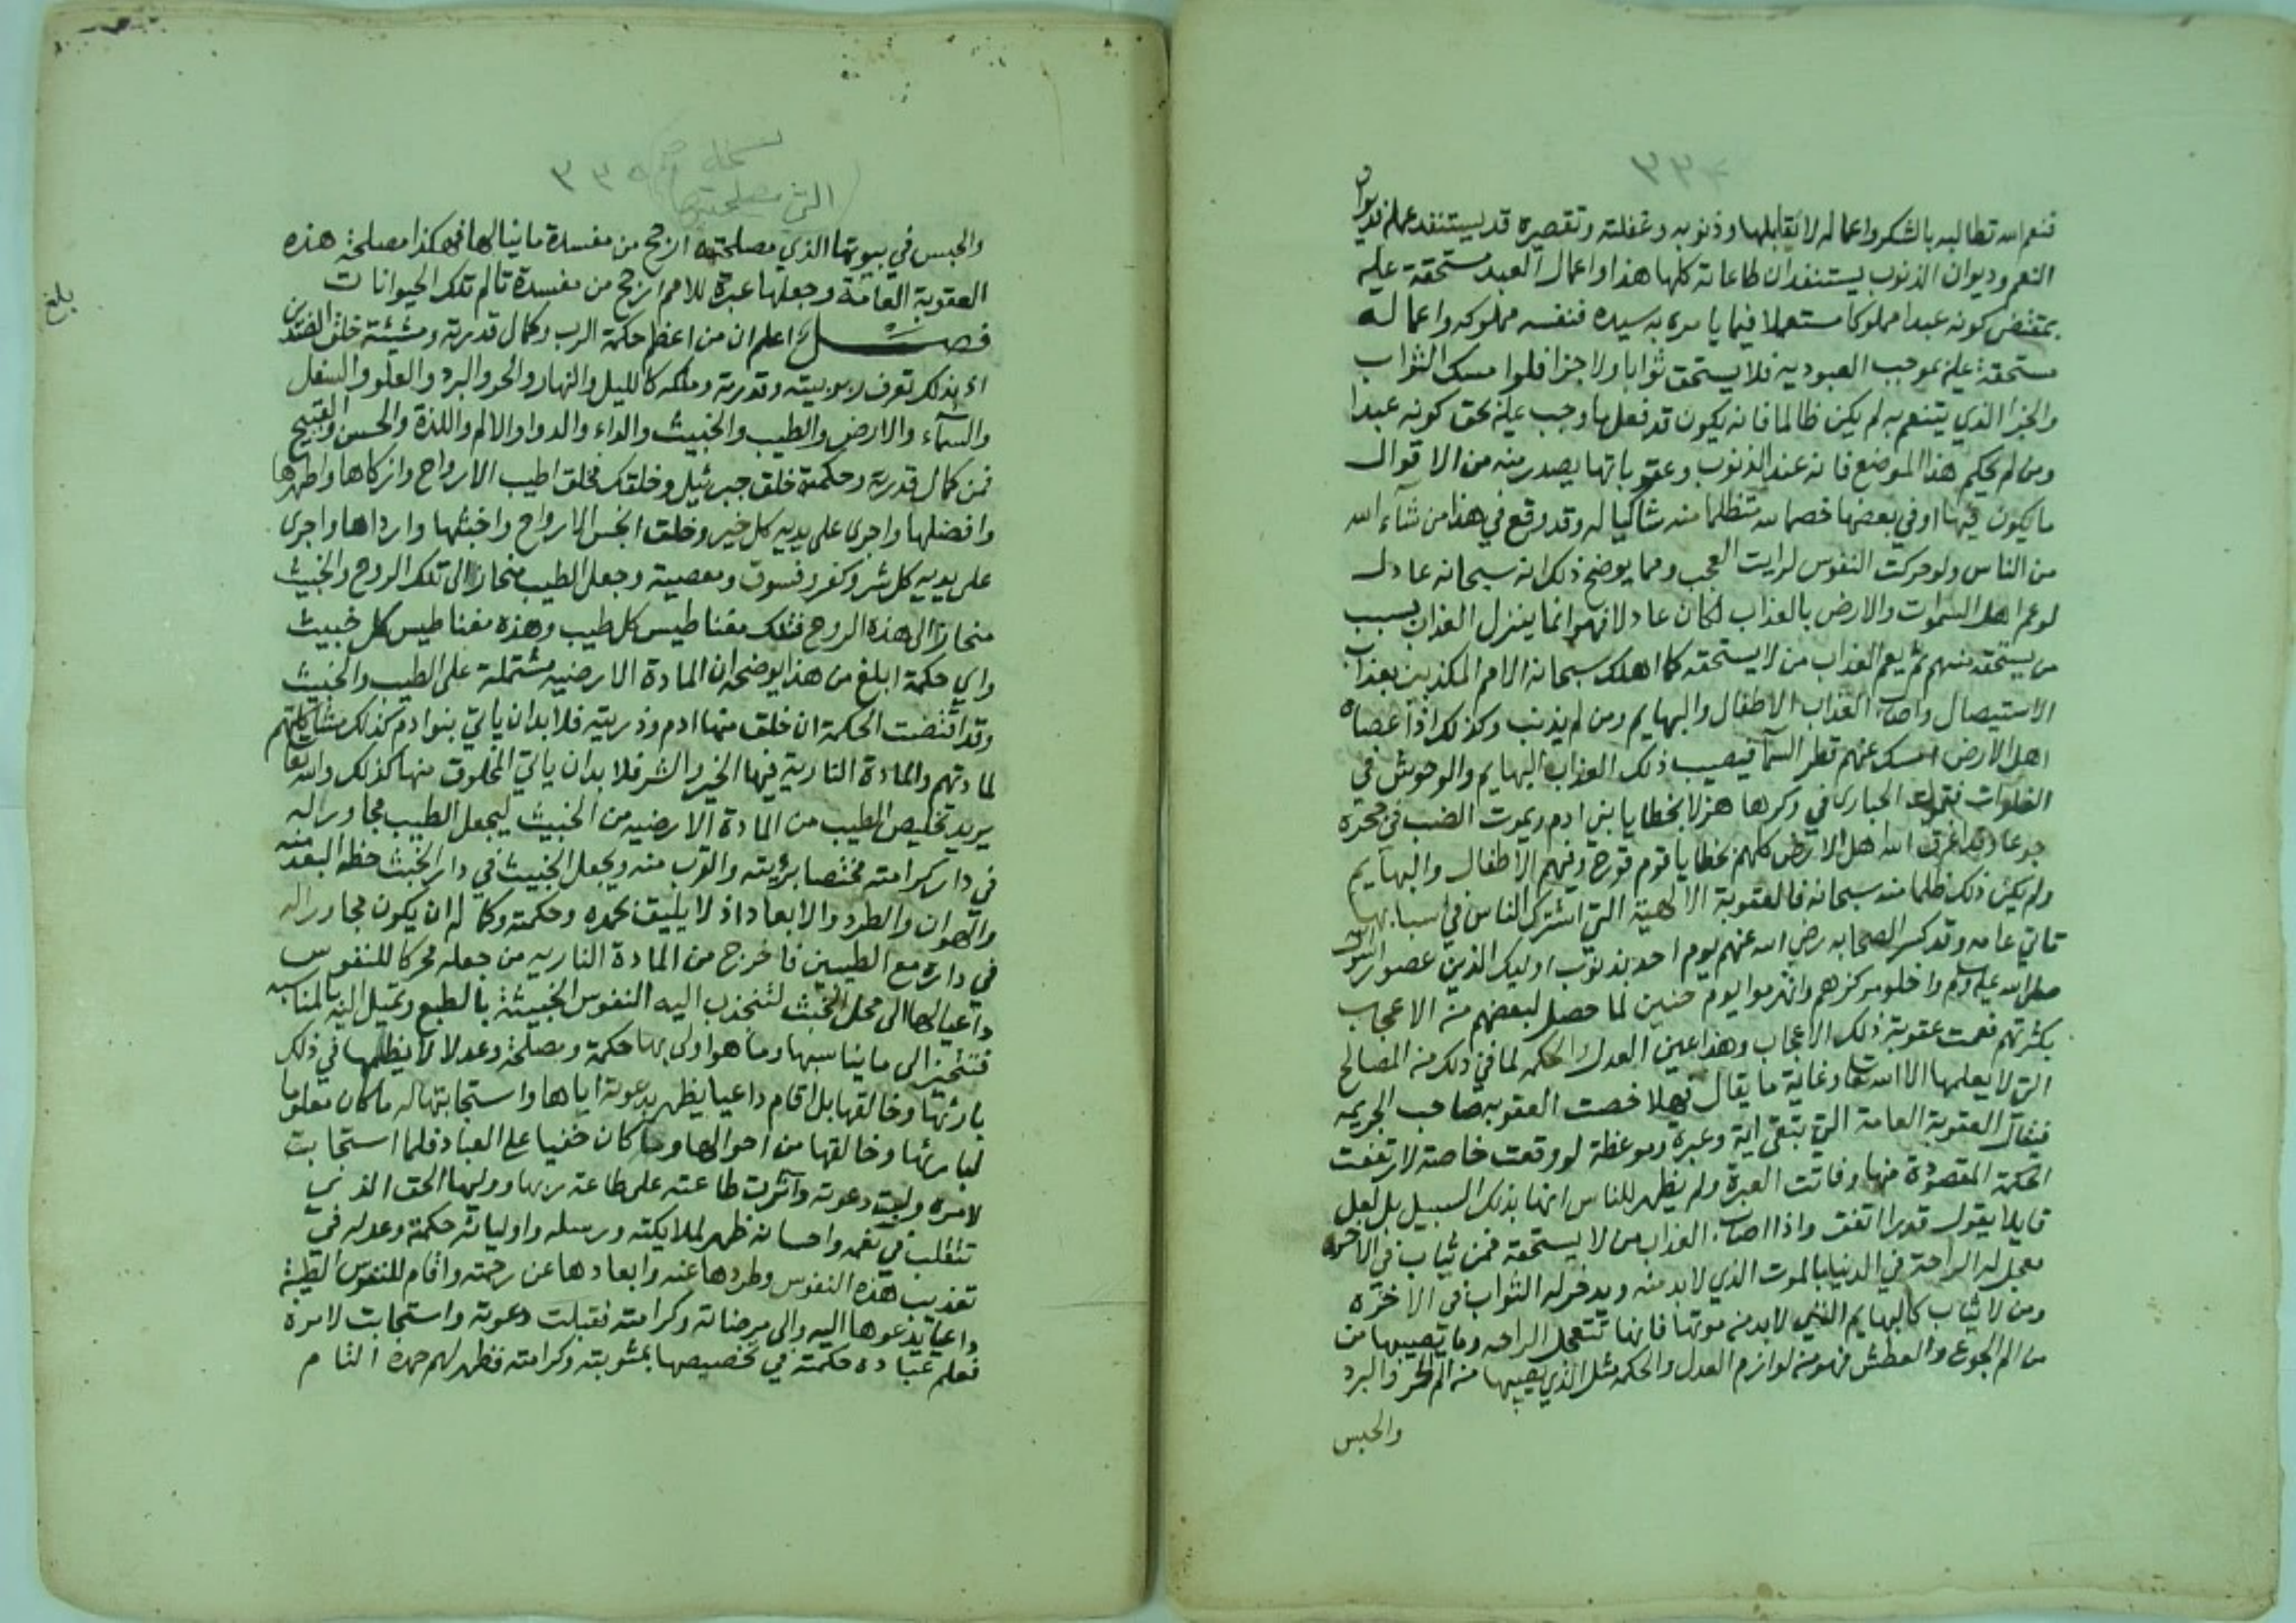 فنعم الله تطالبه بالشكر واعماله لا تقابلها وذنوبه وغفلته وتقصيره قد يستنفد عمله فديوان
النعم وديوان الذنوب يستنفدان طاعاته كلها هذا واعمال العبد مستحقة عليه
بمقتضى كونه عبدا مملوكا مستعملا فيما يامره به سيده فنفسه مملوكه واعماله
مستحقة عليه بموجب العبودية فلا يستحق ثوابا ولا جزا فلو امسك الثواب
والجزا الذي يتنعم به لم يكن ظالما فانه يكون قد فعل ما وجب عليه بحق كونه عبدا
ومن لم يحكم هذا الموضع فانه عند الذنوب وعقوباتها يصدر منه من الاقوال
ما يكون فيها او في بعضها خصما لله متظلما منه شاكيا له وقد وقع في هذا من شاء الله
من الناس ولو حركت النفوس لرايت العجب ومما يوضح ذلك انه سبحانه عادل
لو عم اهل السموات والارض بالعذاب لكان عادلا فهو انما ينزل العذاب بسبب
من يستحقه منهم ثم يعم العذاب من لا يستحقه كما اهلك سبحانه الامم المكذبين بعذاب
الاستيصال واصاب العذاب الاطفال والبهايم ومن لم يذنب وكذلك اذا عصاه
اهل الارض امسك عنهم قطر السمآ فيصيب ذلك العذاب البهايم والوحوش في
الفلوات فتموت الحبارى في وكرها هزلا بخطايا بني ادم ويموت الضب في جحره
جوعا وقد اغرق الله اهل الارض كلهم بخطايا قوم نوح وفيهم الاطفال والبهايم
ولم يكن ذلك ظلما منه سبحانه فالعقوبة الالهية التي اشترك الناس في اسبابها
تاتي عامه وقد كسر الصحابه رضي الله عنهم يوم احد بذنوب اوليك الذين عصوا الرسول
صلى الله عليه وسلم واخلو مركزهم وانهزموا يوم حنين لما حصل لبعضهم من الاعجاب
بكثرتهم فعمت عقوبة ذلك الاعجاب وهذا عين العدل والحكمه لما في ذلك من المصالح
التي لا يعلمها الا الله تعا وغاية ما يقال فهلا خصت العقوبه صاحب الجريمه
فيقال العقوبة العامة التي تبقى اية وعبرة وموعظة لو وقعت خاصة لارتفعت
الحكمة المقصودة منها وفاتت العبرة ولم يظهر للناس انها بذلك السبب بل لعل
قايلا يقول قدرا اتفق واذا اصاب العذاب من لا يستحقه فمن يثاب في الاخرة
معجل له الراحة في الدنيا بالموت الذي لا بد منه ويدخر له الثواب في الاخره
ومن لا يثاب كالبهايم التي لا بد من موتها فانها تتعجل الراحه وما يصيبها من
من الم الجوع والعطش فهو من لوازم العدل والحكمه مثل الذي يصيبها من الم الحر والبرد
والحبس
التي مصلحتها
والحبس في بيوتها الذي مصلحته ارجح من مفسدة ما ينالها فهكذا مصلحة هذه
العقوبة العامة وجعلها عبرة للامم ارجح من مفسدة تالم تلك الحيوانات
بلغ
فصل اعلم ان من اعظم حكمة الرب وكمال قدرته ومشيئة خلق الضدين
اذ بذلك تعرف ربوبيته وقدرته وملكه كالليل والنهار والحر والبرد والعلو والسفل
والسمآء والارض والطيب والخبيث والداء والدوا والالم واللذة والحسن والقبيح
فمن كمال قدرته وحكمته خلق جبرئيل وخلقك فخلق اطيب الارواح وازكاها واطهرها
وافضلها واجرى على يديه كل خير وخلق انجس الارواح واخبثها وارداها واجرى
على يديه كل شر وكفر وفسوق ومعصية وجعل الطيب منحازا الى تلك الروح والخبيث
منحازا الى هذه الروح فتلك مغناطيس كل طيب وهذه مغناطيس كل خبيث
واي حكمة ابلغ من هذا يوضحه ان المادة الارضيه مشتملة على الطيب والخبيث
وقد اقتضت الحكمة ان خلق منها ادم وذريته فلا بد ان ياتي بنوا ادم كذلك مشاكلتهم
لمادتهم والمادة النارية فيها الخير والشر فلا بد ان ياتي المخلوق منها كذلك والله تعا
يريد تخليص الطيب من المادة الارضيه من الخبيث ليجعل الطيب مجاورا له
في دار كرامته مختصا برؤيته والقرب منه ويجعل الخبيث في دار الخبث حظه البعد منه
والهوان والطرد والابعاد اذ لا يليق بحمده وحكمته وكماله ان يكون مجاورا له
في داره مع الطيبين فاخرج من المادة الناريه من جعله محركا للنفوس
داعيا لها الى محل الخبث لتنجذب اليه النفوس الخبيثة بالطبع وتميل اليه بالمناسبه
فتتحيز الى ما يناسبها وما هو اولى بها حكمة ومصلحة وعدلا لا يظلمها في ذلك
بارئها وخالقها بل اقام داعيا يظهر بدعوته اياها واستجابتها له ما كان معلوما
لبارئها وخالقها من احوالها وما كان خفيا على العباد فلما استجابت
لامره ولبت دعوته وآثرت طاعته على طاعة ربها ووليها الحق الذي
تتقلب في نعمه واحسانه ظهر لملايكته ورسله واوليائه حكمته وعدله في
تعذيب هذه النفوس وطردها عنه وابعادها عن رحمته واقام للنفوس الطيبة
داعيا يدعوها اليه والى مرضاته وكرامته فقبلت دعوته واستجابت لامره
فعلم عباده حكمته في تخصيصها بمثوبته وكرامته فظهر لهم حمده التام